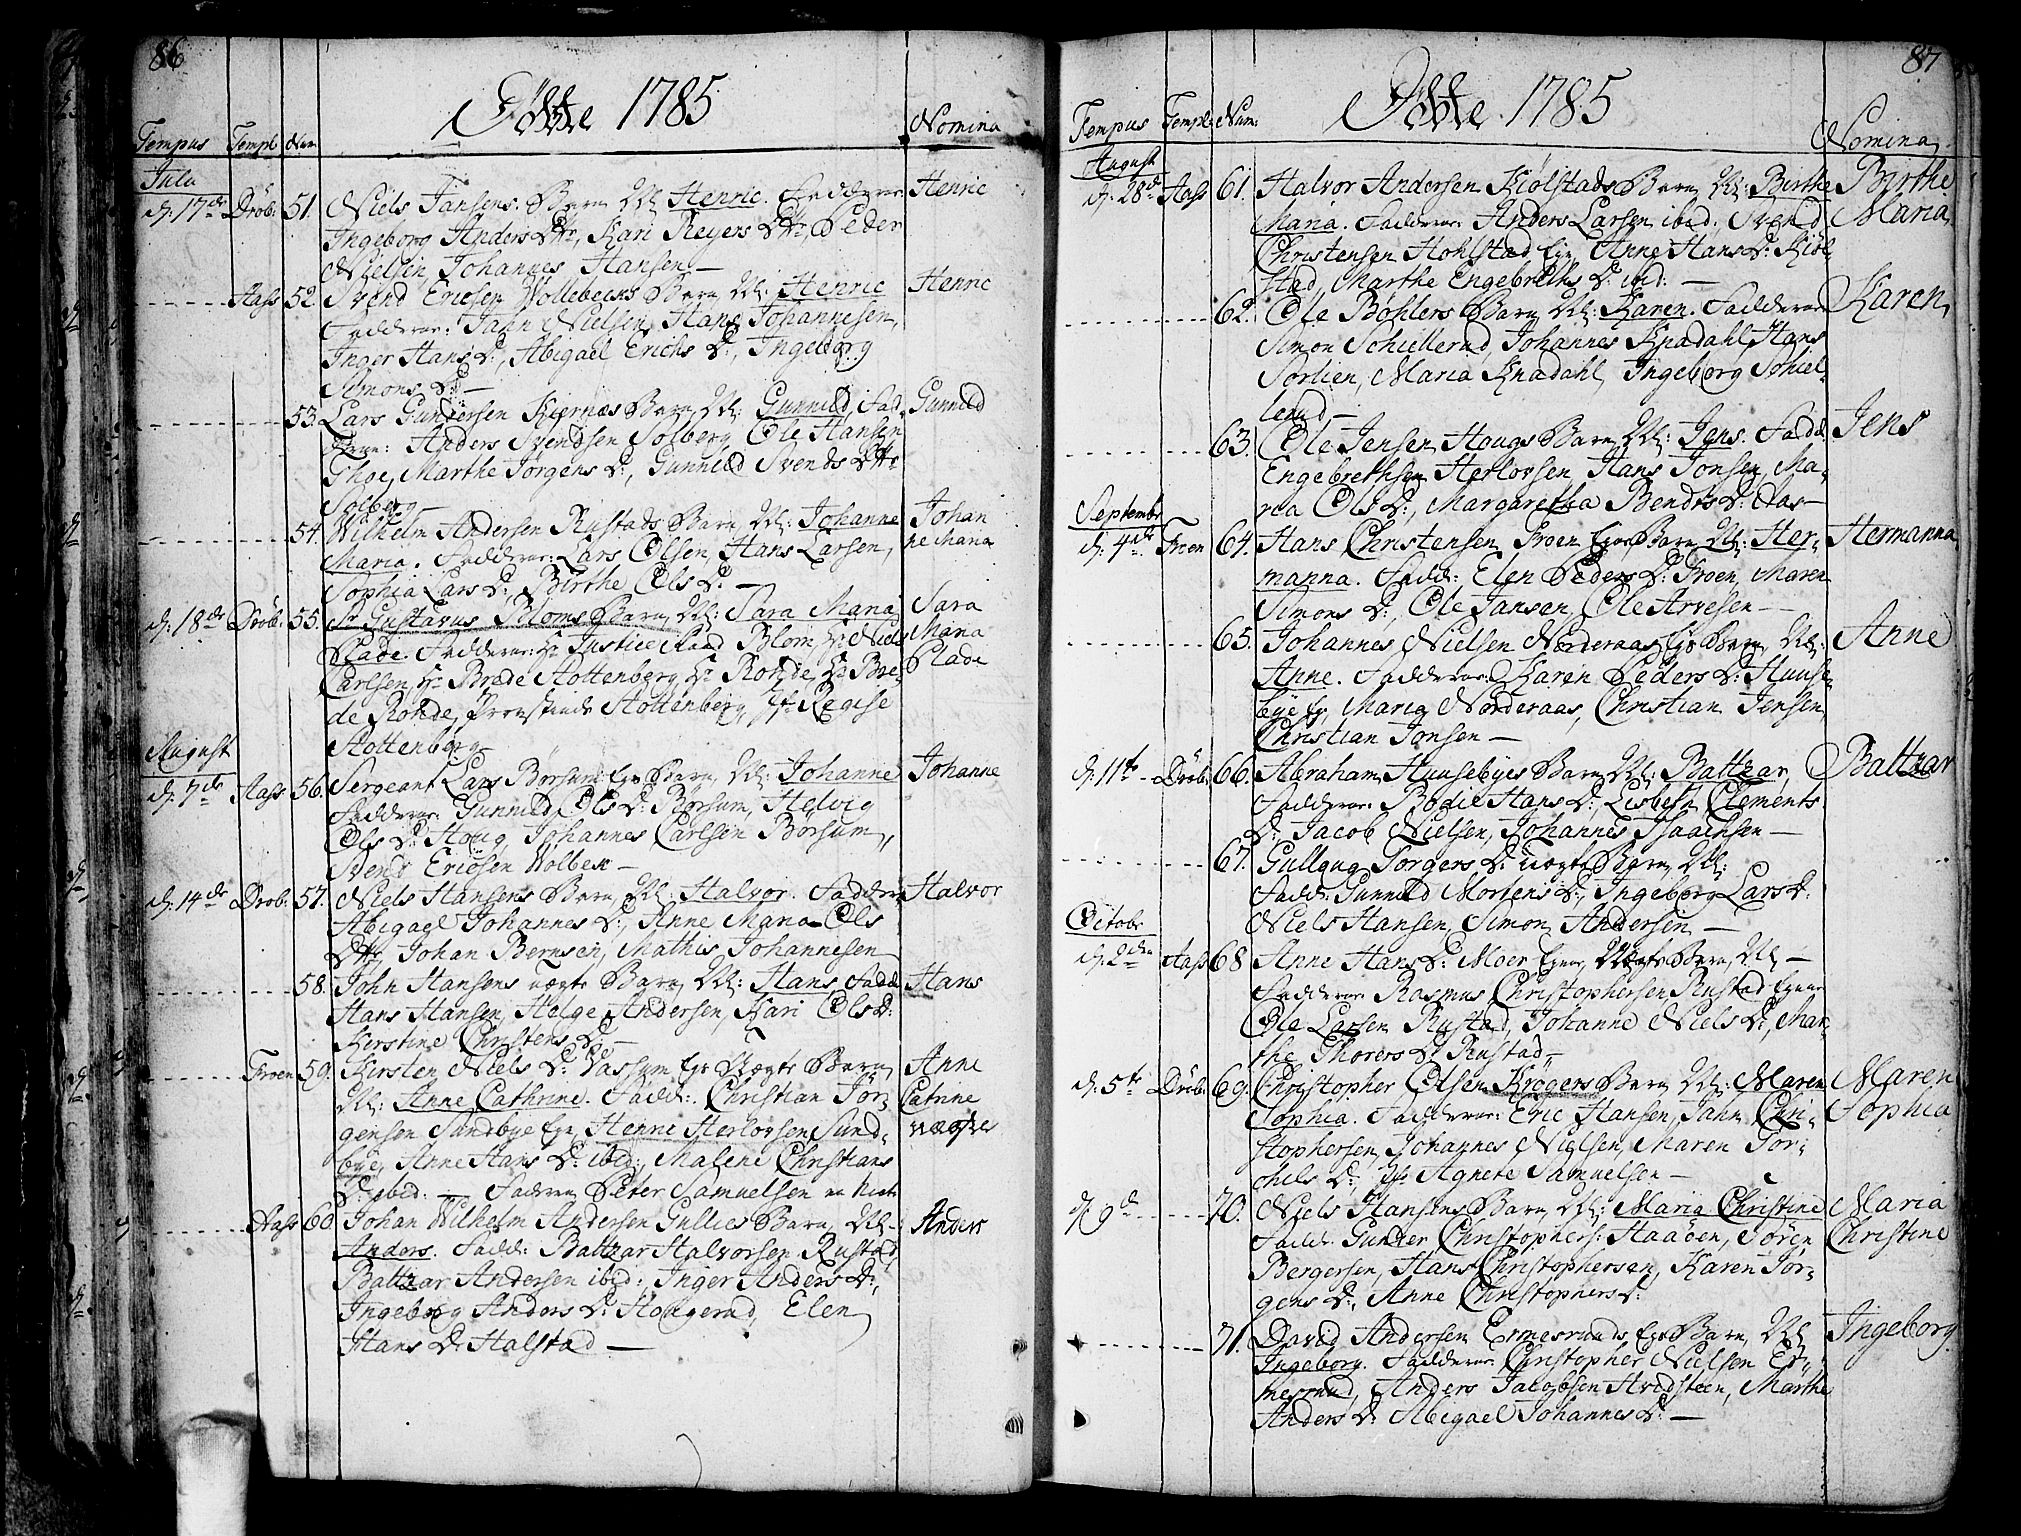 86
Døbte 1785
Tempus Templ Num Nomina
Julii
d. 17de Drøb. 51. Niels Jansens Barn Nl: Henric. Faddere Henric
Ingeborg Anders Dtr, Kari Reyers Dtr, Peder
Nielsen, Johannes Hansen —
Aass 52. Svend Ericsen Wollebecks Barn Nl: Henric Henric
Faddere: Jahn Nielsen, Hans Johannesen,
Inger Hans D:, Abigael Erichs D:, Ingeborg
Simons D: —
53. Lars Gundersen Kiernæs Barn Nl: Gunnild, Fad- Gunnild
dere: Anders Svendsen Solberg, Ole Hansen
Thoe, Marthe Jørgens D:, Gunnild Svends Dtr
Solberg —
54. Wilhelm Andersen Rustads Barn Nl: Johanne Johan
Maria. Faddere: Lars Olsen, Hans Larsen, ne Maria
Sophia Lars D:, Birthe Ols D: —
d. 18de Drøb. 55. Sr Gustavus Bloms Barn Nl: Sara Maria Sara
Plade. Faddere: Hr Justice Raad Blom, Hr Niels Maria
Carlsen, Hr Brede Stottenberg, Hr Rohde, Hr Bre- Plade
de Rohde, Provstinde Stottenberg, Jfr Regise
Stottenberg —
August
d. 7de Aass 56. Sergeant Lars Børsum Eje Barn Nl: Johanne Johanne
Faddere: Gunnild Ols D: Børsum, Helvig
Ols D: Houg, Johannes Carlsen Børsum,
Svend Ericsen Wolbek —
d. 14de Drøb. 57. Niels Hansens Barn Nl: Halvor. Faddere Halvor
Abigael Johannes D:, Anne Maria Ols
Dtr, Johan Bernsen, Mathis Johannesen
58. John Hansens uægte Barn Nl: Hans, Fadd: Hans
Hans Hansen, Helge Andersen, Kari Ols D:
Kerstine Christens D: —
Froen 59. Kersten Niels D: Vassum Eje Uægte Barn Anne
Nl: Anne Cathrine. Fadd: Christian Jør- Catrine
gensen Sundbye Eje, Henric Herlovsen Sund- uægte
bye, Anne Hans D: ibid:, Malene Christians
D: ibid: — Faderen Peter Samuelsen
Aass 60 Johan Wilhelm Andersen Gullies Barn Nl: Anders
Anders. Fadd: Baltzar Halvorsen Rustad,
Baltzar Andersen ibid:, Inger Anders D:,
Ingeborg Anders D: Hougerud, Elen
Hans D: Halstad —
87
Døbte 1785
Tempus Templ: Num: Nomina
August
d. 28de Aass 61. Halvor Andersen Kiølstads Barn Nl: Birthe Birthe
Maria. Faddere: Anders Larsen ibid. Svend Maria
Christensen Hohlstad Eje, Anne Hans D: Kiøl-
stad, Marthe Engebreths D: ibid: —
62. Ole Bøhlers Barn Nl: Karen. Faddere Karen
Simon Schiellerud, Johannes Knadahl, Hans
Sørlien, Maria Knadahl, Ingeborg Schiel-
lerud —
63. Ole Jensen Hougs Barn Nl: Jens. Fadd: Jens
Engebrethsen Herlovsen, Hans Jonsen, Ma-
ria Ols D:, Margaretha Bendts D: Aas —
Septembr
d. 4de Froen 64. Hans Christensen Froen Eje Barn Nl: Her- Hermanna
manna. Fadd: Elen Peders D: Froen, Maren
Simons D:, Ole Jansen, Ole Arvesen —
65. Johannes Nielsen Norderaas Eje Barn Nl: Anne
Anne. Faddere: Karen Peders D: Huuse-
bye Eje, Maria Norderaas, Christian Jensen,
Christian Jonsen —
d. 11te Drøb. 66. Abraham Huusebyes Barn Nl: Baltzar, Baltzar
Faddere: Bodil Hans D:, Lisbeth Clements
D:, Jacob Nielsen, Johannes Isaachsen —
67. Gullaug Torgers D: uægte Barn Nl:
Fadd: Gunnild Mortens D:, Ingeborg Lars D:
Niels Hansen, Simon Andersen —
Octobr
d. 2den Aass 68 Anne Hans D: Moer Ejer, Uægte Barn, Nl —
Faddere: Rasmus Christophersen Rustad Ejer
Ole Larsen Rustad, Johanne Niels D:, Mar-
the Thorers D: Rustad —
d. 5te Drøb. 69. Christopher Olsen Krøgers Barn Nl: Maren Maren
Sophia. Faddere: Eric Hansen, Jahn Chri- Sophia
stophersen, Johannes Nielsen, Maren Tor-
chels D:, Jfr Agnete Samuelsen —
d. 9de 70. Niels Hansens Barn Nl: Maria Christine Maria
Fadd: Gunder Christophers: Haaøen, Søren Christine
Bergersen, Hans Christophersen, Karen Jør-
gens D:, Anne Christophers D:
71. David Andersen Ermesruuds Eje Barn Nl Ingeborg
Ingeborg. Faddere: Christopher Nielsen Er-
mesruud, Anders Jacobsen Hvidsteen, Marthe
Anders D: Abigael Johannes D: —